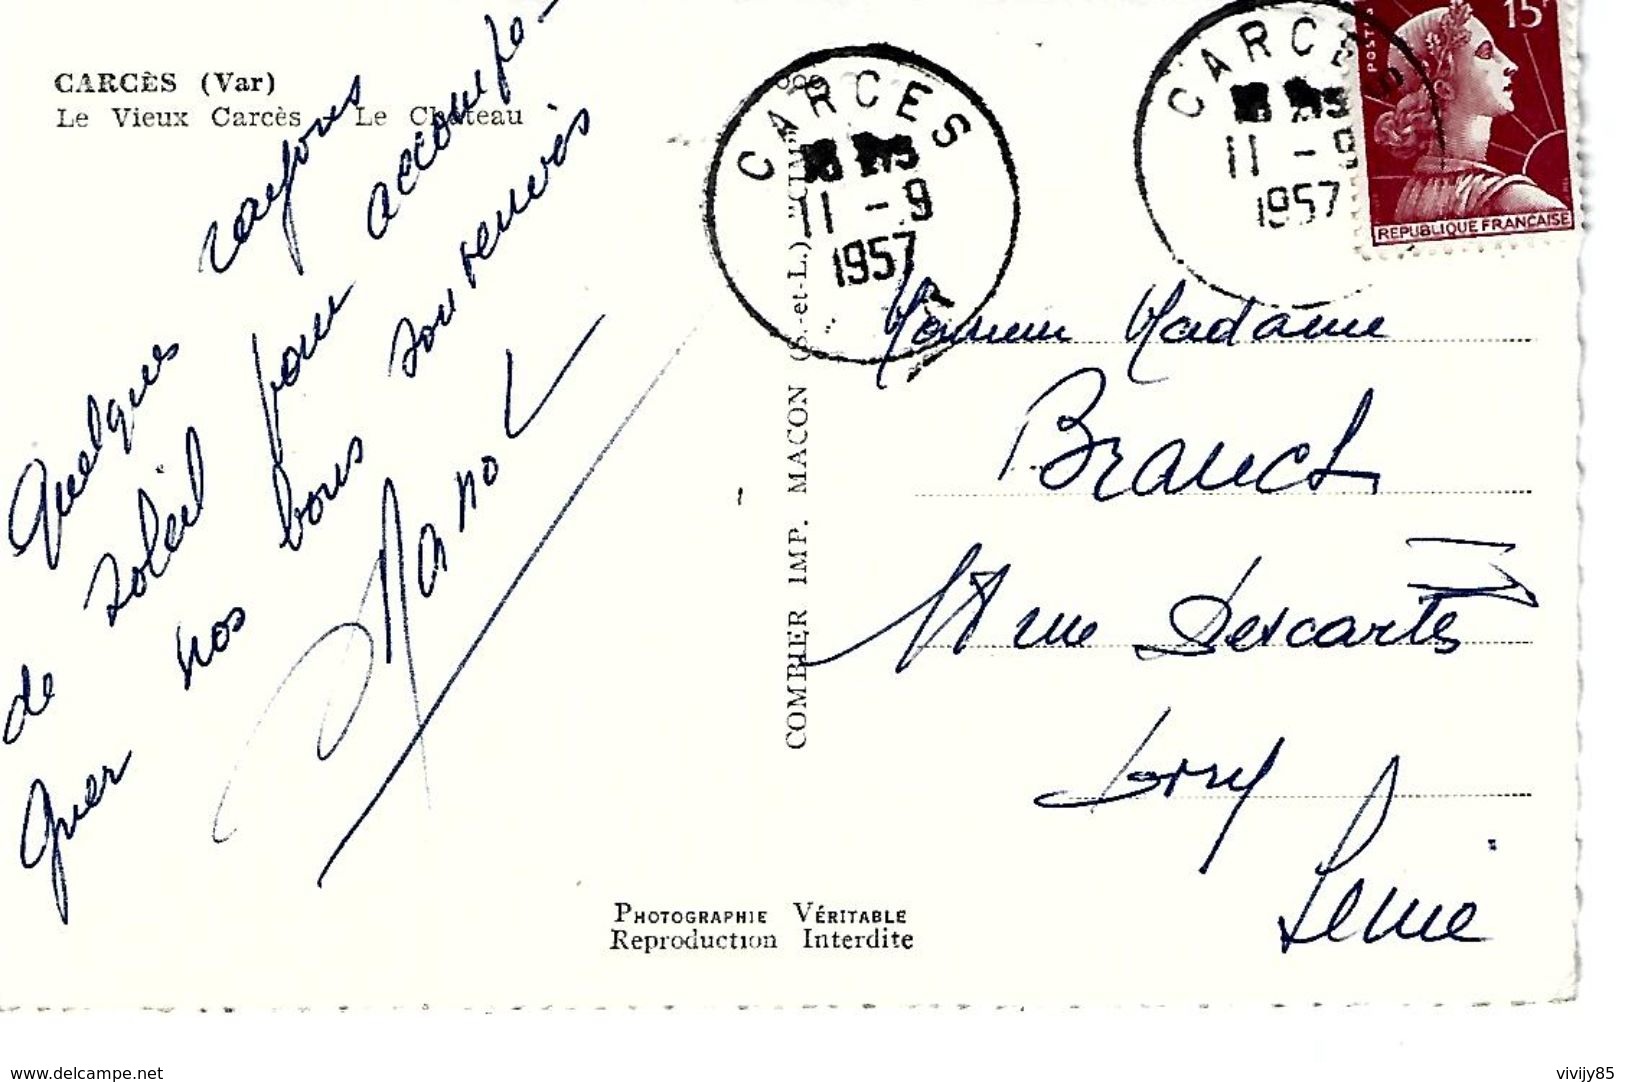 CARCÈS (Var)
Le Vieux Carcès Le Château
Quelques rayons
de soleil pour accompa-
gner nos bons souvenirs
CARCES
11 - 9
1957
CARCES
11 - 9
1957
15F
POSTES
REPUBLIQUE FRANÇAISE
COMBIER IMP. MACON (S.-et-L.) "CIM"
Monsieur Madame
Branch
rue Descartes
Seine
PHOTOGRAPHIE VÉRITABLE
Reproduction Interdite
www.delcampe.net
vivijy85